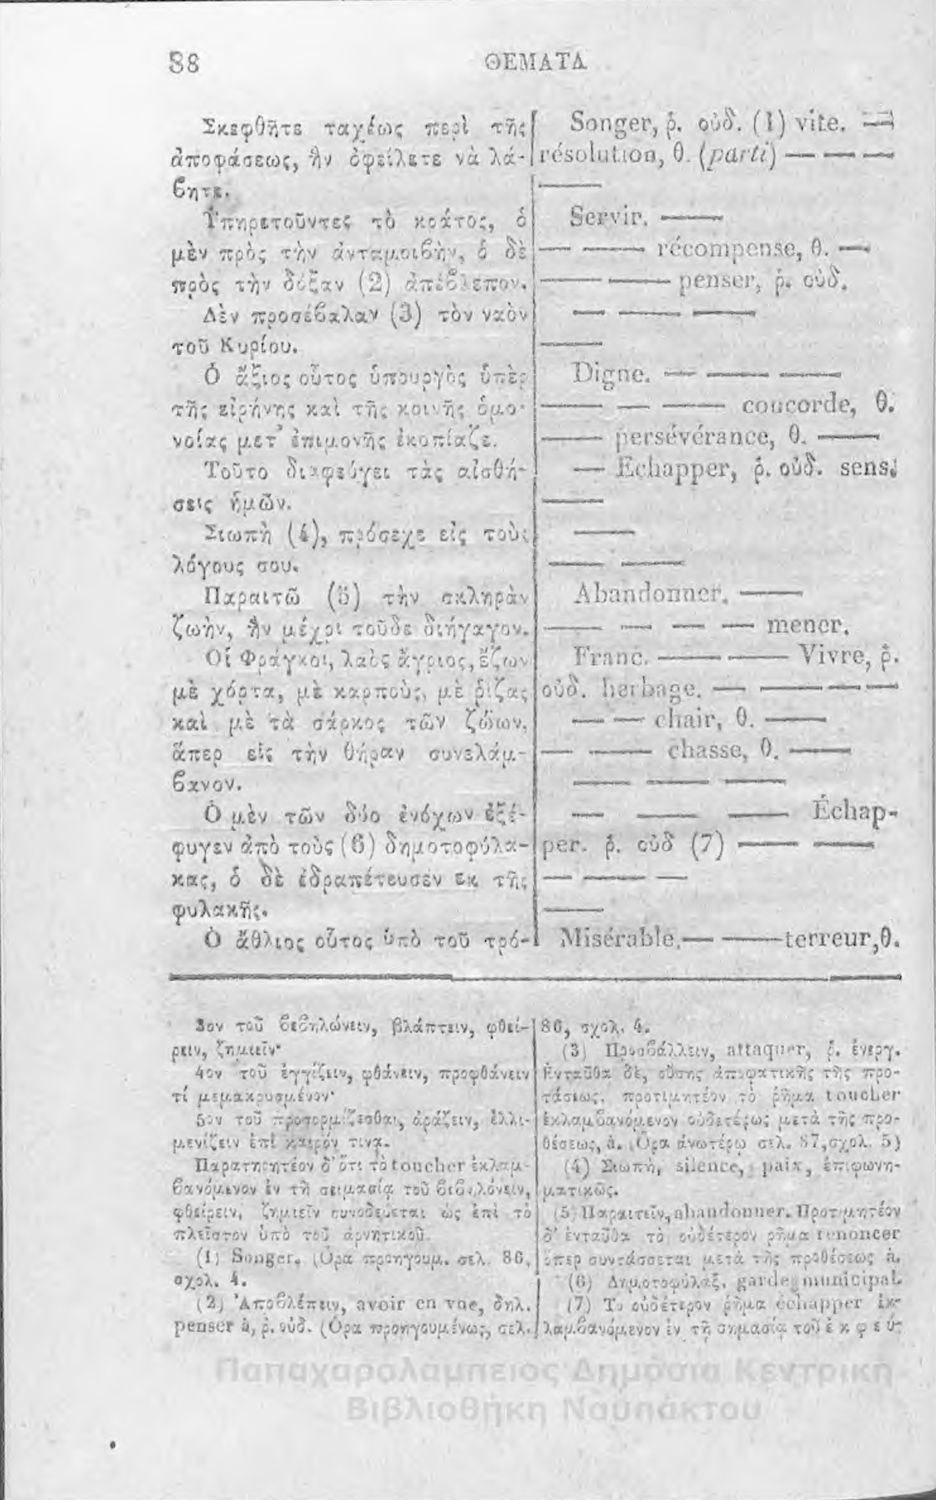 88 ΘΕΜΑΤΑ
Σκεφθῆτε ταχέως περὶ τῆς
ἀποφάσεως, ἣν ὀφείλετε νὰ λά-
βητε.
Ὑπηρετοῦντες τὸ κράτος, ὁ
μὲν πρὸς τὴν ἀνταμοιβὴν, ὁ δὲ
πρὸς τὴν δόξαν (2) ἀπέβλεπον.
Δὲν προσέβαλαν (3) τὸν ναὸν
τοῦ Κυρίου.
Ὁ ἄξιος οὗτος ὑπουργὸς ὑπὲρ
τῆς εἰρήνης καὶ τῆς κοινῆς ὁμο-
νοίας μετ' ἐπιμονῆς ἐκοπίαζε.
Τοῦτο διαφεύγει τὰς αἰσθή-
σεις ἡμῶν.
Σιωπὴ (4), πρόσεχε εἰς τοὺς
λόγους σου.
Παραιτῶ (5) τὴν σκληρὰν
ζωὴν, ἣν μέχρι τοῦδε διήγαγον.
Οἱ Φράγκοι, λαὸς ἄγριος, ἔζων
μὲ χόρτα, μὲ καρποὺς, μὲ ῥίζας
καὶ μὲ τὰ σάρκος τῶν ζώων,
ἅπερ εἰς τὴν θήραν συνελάμ-
βανον.
Ὁ μὲν τῶν δύο ἐνόχων ἐξέ-
φυγεν ἀπὸ τοὺς (6) δημοτοφύλα-
κας, ὁ δὲ ἐδραπέτευσεν ἐκ τῆς
φυλακῆς.
Ὁ ἄθλιος οὗτος ὑπὸ τοῦ τρό-
Songer, ῥ. οὐδ. (1) vite. —
résolution, θ. (parti) — — —
—
Servir. —
— — récompense, θ. —
— — penser, ῥ. οὐδ.
— — —
—
Digne. — — —
— — — concorde, θ.
— persévérance, θ. —
— Echapper, ῥ. οὐδ. sens.
—
—
— —
Abandonner. —
— — — — mener.
Franc. — — Vivre, ῥ.
οὐδ. herbage. — — — —
— — chair, θ. —
— — chasse, θ. —
— — —
— — — Échap-
per. ῥ. οὐδ (7) — —
— — —
—
Misérable. — — terreur, θ.
3ον τοῦ βεβηλώνειν, βλάπτειν, φθεί-
ρειν, ζημιεῖν·
4ον τοῦ ἐγγίζειν, φθάνειν, προφθάνειν
τί μεμακρυσμένον·
5ον τοῦ προσορμίζεσθαι, ἀράζειν, ἐλλι-
μενίζειν ἐπὶ καιρόν τινα.
Παρατηρητέον δ' ὅτι τὸ toucher ἐκλαμ-
βανόμενον ἐν τῇ σημασίᾳ τοῦ βεβηλόνειν,
φθείρειν, ζημιεῖν συνοδεύεται ὡς ἐπὶ τὸ
πλεῖστον ὑπὸ τοῦ ἀρνητικοῦ.
(1) Songer. (Ὅρα προηγουμ. σελ. 86,
σχολ. 4.
(2) Ἀποβλέπειν, avoir en vue, δηλ.
penser à, ῥ. οὐδ. (Ὅρα προηγουμένως, σελ.
86, σχολ. 4.
(3) Προσβάλλειν, attaquer, ῥ. ἐνεργ.
Ἐνταῦθα δὲ, οὔσης ἀποφατικῆς τῆς προ-
τάσεως, προτιμητέον τὸ ῥῆμα toucher
ἐκλαμβανόμενον οὐδετέρως μετὰ τῆς προ-
θέσεως, à. (Ὅρα ἀνωτέρω σελ. 87, σχολ. 5)
(4) Σιωπὴ, silence, paix, ἐπιφωνη-
ματικῶς.
(5) Παραιτεῖν, abandonner. Προτιμητέον
δ' ἐνταῦθα τὸ οὐδέτερον ῥῆμα renoncer
ὅπερ συντάσσεται μετὰ τῆς προθέσεως à.
(6) Δημοτοφύλαξ, garde municipal.
(7) Τὸ οὐδέτερον ῥῆμα échapper ἐκ-
λαμβανόμενον ἐν τῇ σημασίᾳ τοῦ ἐκφεύ-
Παπαχαραλάμπειος Δημόσια Κεντρική
Βιβλιοθήκη Ναυπάκτου